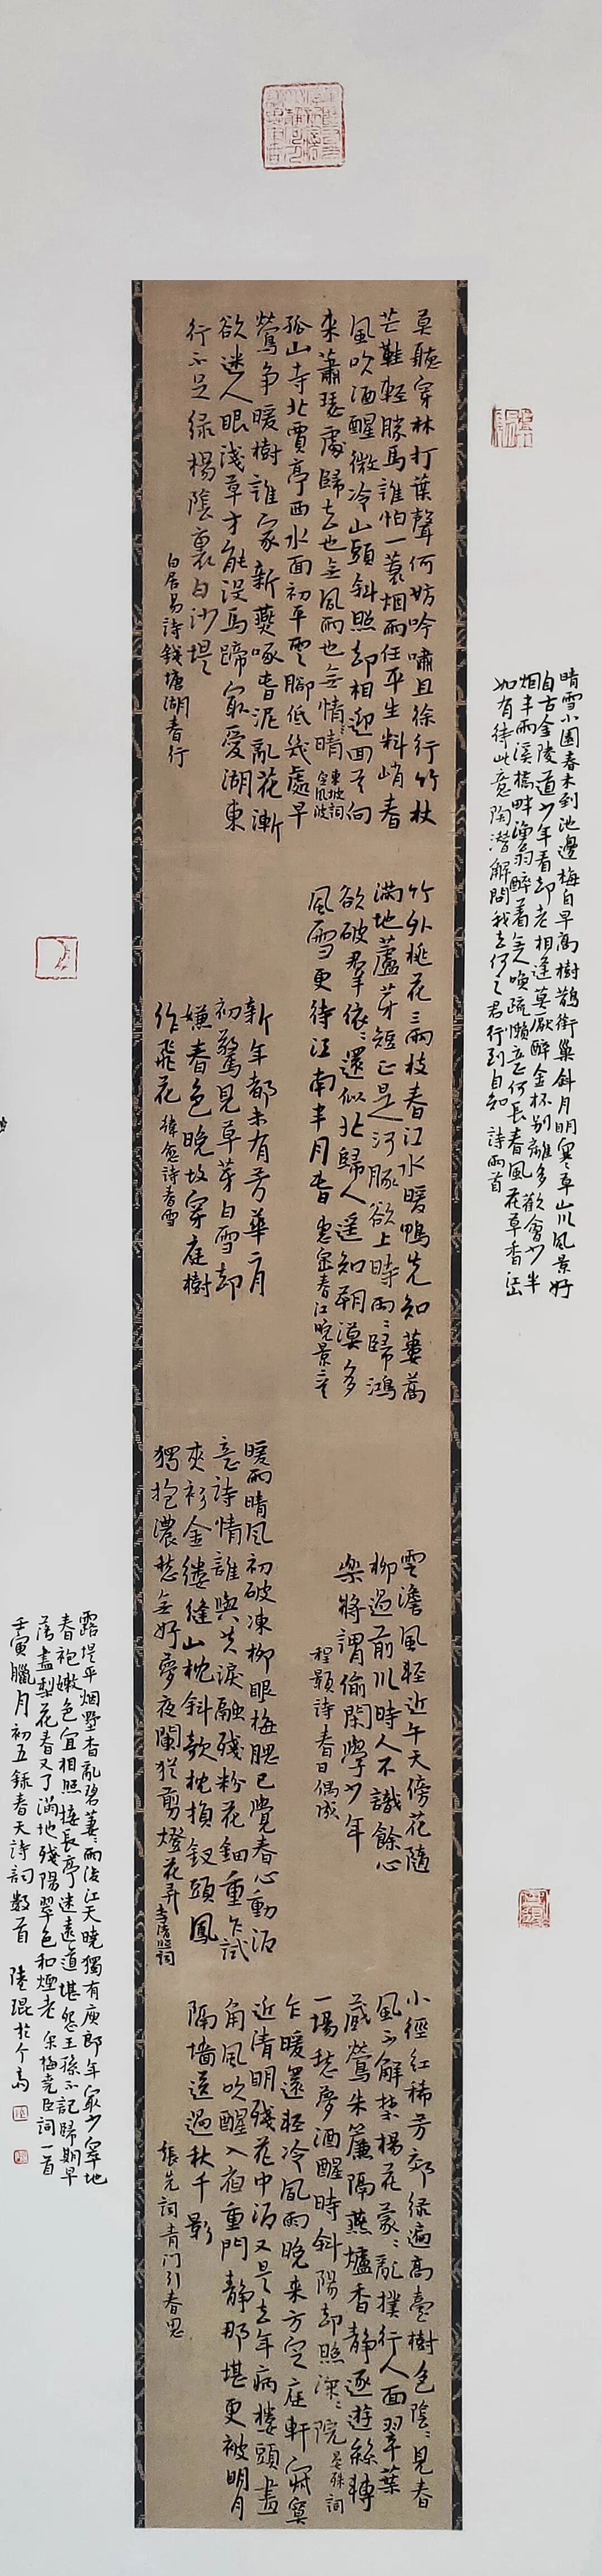 晴雪小園春未到池邊梅自早高樹鵲銜巢斜月明寒草山川風景好
自古金陵道少年看卻老相逢莫厭醉金杯別離多歡會少半
烟半雨溪橋畔漁翁醉着無人喚疏懶意何長春風花草香江山
如有待此意陶潛解問我去何之君行到自知 詩兩首
莫聽穿林打葉聲何妨吟嘯且徐行竹杖
芒鞋輕勝馬誰怕一蓑烟雨任平生料峭春
風吹酒醒微冷山頭斜照却相迎回首向
来蕭瑟處歸去也無風雨也無情晴 東坡詞定風波
孤山寺北賈亭西水面初平雲腳低幾處早
鶯爭暖樹誰家新燕啄春泥亂花漸
欲迷人眼淺草才能没馬蹄最愛湖東
行不足緑楊陰裏白沙堤
白居易詩錢塘湖春行
竹外桃花三兩枝春江水暖鴨先知蔞蒿
滿地蘆芽短正是河豚欲上時兩兩歸鴻
欲破羣依依還似北歸人遥知朔漠多
風雪更待江南半月春 惠崇春江晚景二首
新年都未有芳華二月
初驚見草芽白雪却
嫌春色晚故穿庭樹
作飛花 韓愈詩春雪
雲澹風輕近午天傍花隨
柳過前川時人不識餘心
樂將謂偷閑學少年
程顥詩春日偶成
暖雨晴風初破凍柳眼梅腮已覺春心動酒
意詩情誰與共淚融殘粉花鈿重乍試
夾衫金縷縫山枕斜欹枕損釵頭鳳
獨抱濃愁無好夢夜闌猶剪燈花弄 李清照詞
小徑紅稀芳郊緑遍高臺樹色陰陰見春
風不解禁楊花蒙蒙亂撲行人面翠葉
藏鶯朱簾隔燕爐香静逐遊絲轉
一場愁夢酒醒時斜陽却照深深院 晏殊詞
乍暖還輕冷風雨晚来方定庭軒寂寞
近清明殘花中酒又是去年病樓頭畫
角風吹醒入夜重門静那堪更被明月
隔墻送過秋千影
張先詞青门引春思
露堤平烟墅杳亂碧萋萋雨後江天曉獨有庾郎年最少窣地
春袍嫩色宜相照接長亭迷遠道堪怨王孫不記歸期早
落盡梨花春又了滿地殘陽翠色和煙老 宋梅堯臣詞一首
壬寅臘月初五録春天詩詞數首 陸琨於个高